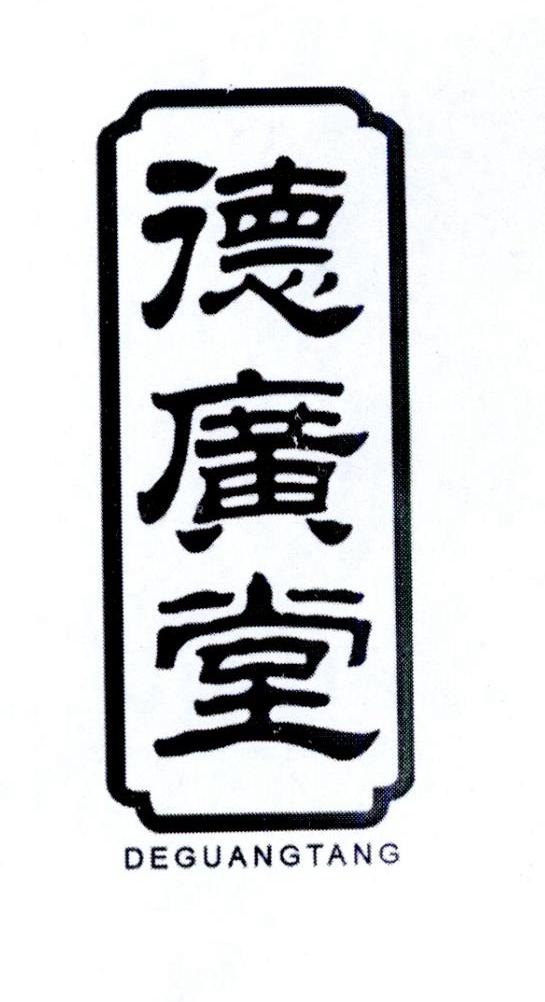 德廣堂
DEGUANGTANG